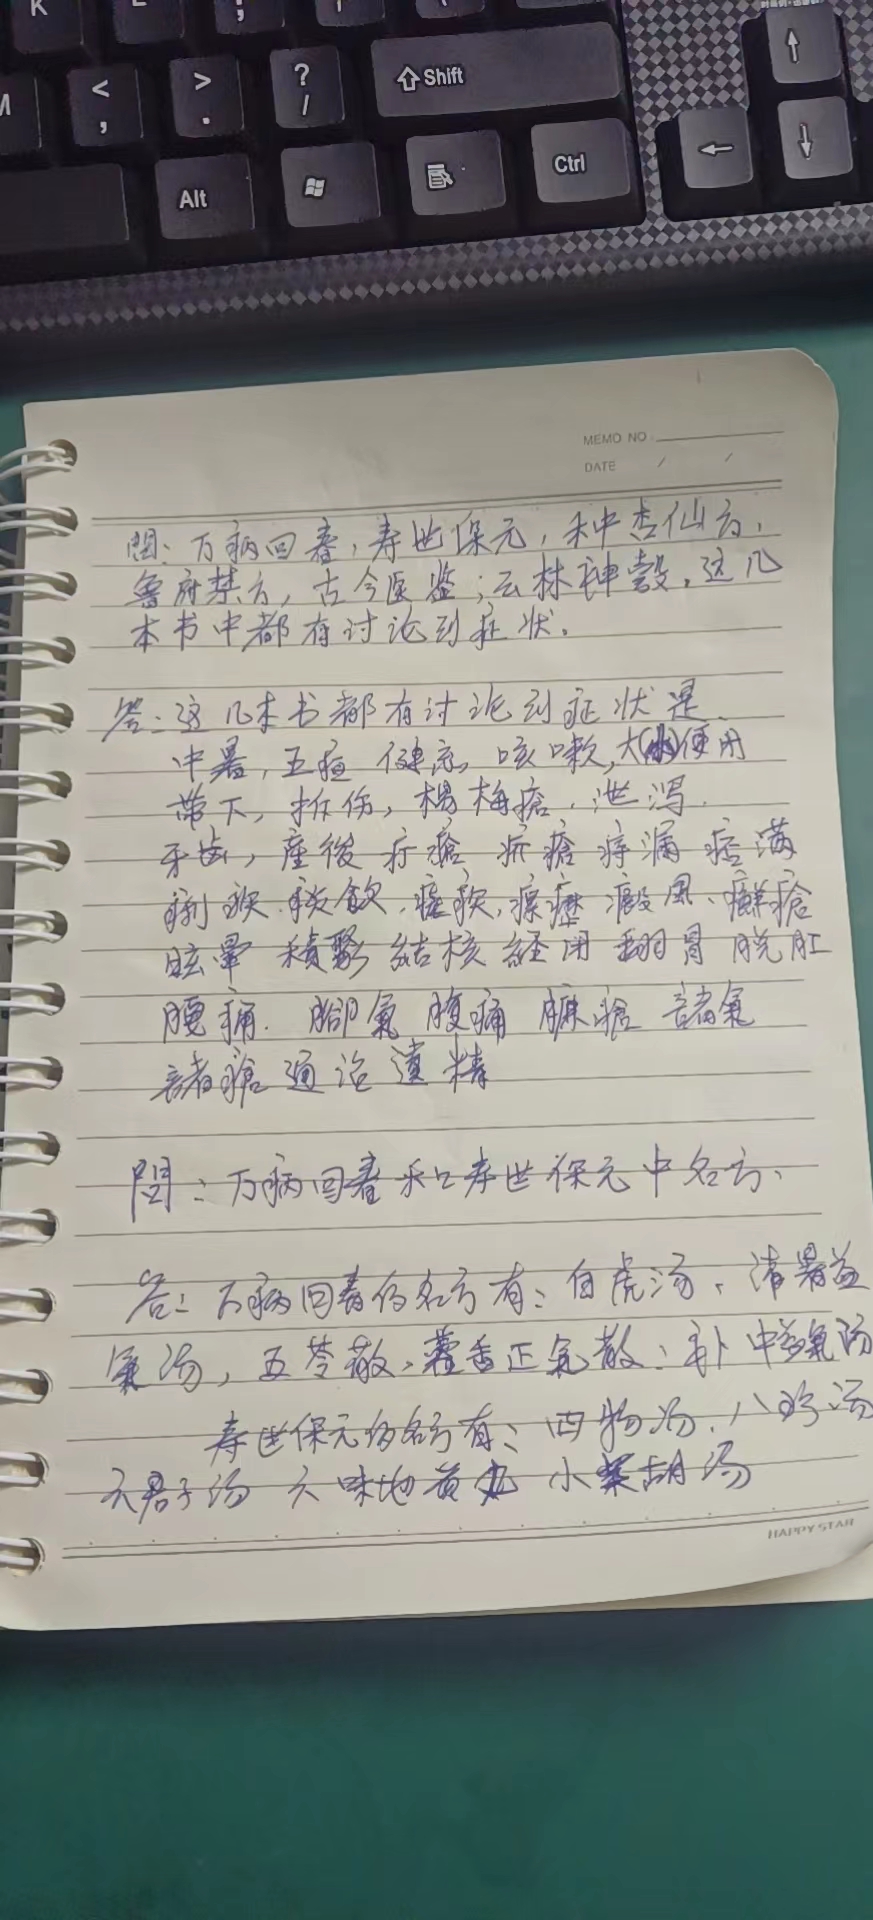 K
M < , > . ? / Shift
Alt Ctrl
MEMO NO
DATE / /
問：万病回春，寿世保元，种杏仙方，
鲁府禁方，古今医鉴；云林神彀，这几
本书中都有讨论到症状。
答：这几本书都有讨论到症状是
中暑，五疸 健忘，咳嗽，大(小)便闭
带下，折伤，楊梅瘡，泄泻，
牙齿，産後 疔瘡 疥瘡 痔漏 痞满
痢疾 痰飲，瘧疾，瘰癧 癜风、癬瘡
眩暈 積聚 結核 経闭 翻胃 脱肛
腰痛 腳氣 腹痛 臁瘡 諸氣
諸瘡通治 遺精
問：万病回春和寿世保元中名方、
答：万病回春的名方有：白虎汤、清暑益
氣汤，五苓散、藿香正氣散：补中益氣汤
寿世保元的名方有：四物汤，八珍汤
六君子汤 六味地黄丸 小柴胡汤
HAPPY STAR